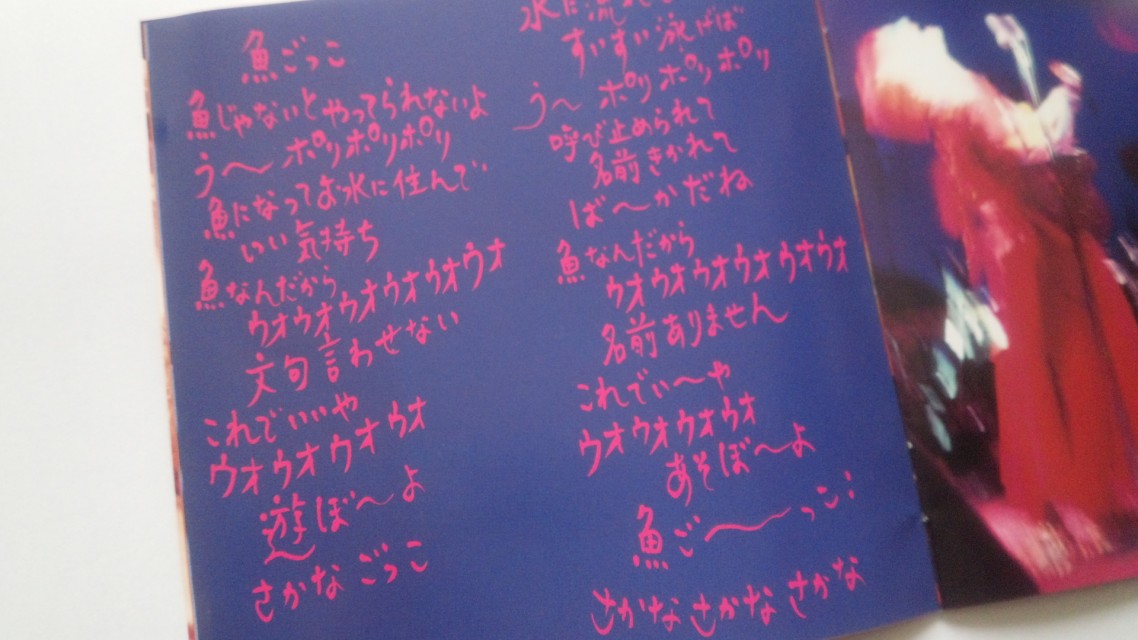 魚ごっこ
魚じゃないとやってられないよ
う〜ポリポリポリ
魚になってお水に住んで
いい気持ち
魚なんだから
ウオウオウオウオウオウオ
文句言わせない
これでいいや
ウオウオウオウオ
遊ぼ〜よ
さかなごっこ
水に流れて
すいすい泳げば
う〜ポリポリポリ
呼び止められて
名前きかれて
ば〜かだね
魚なんだから
ウオウオウオウオウオウオ
名前ありません
これでい〜や
ウオウオウオウオ
あそぼ〜よ
魚ご〜〜っこ:
さかなさかなさかな